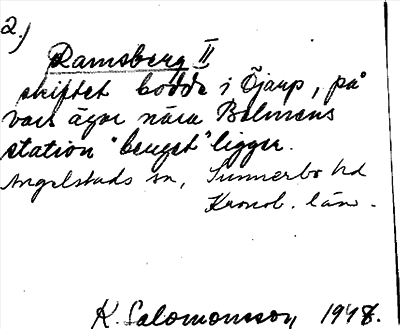 2.)
Ramsberg II
skiftet bodde i Öjarp, på
vars ägor nära Bolmens
station "berget" ligger.
Angelstads sn, Sunnerbo hd
Kronob. län.
K. Salomonsson 1948.